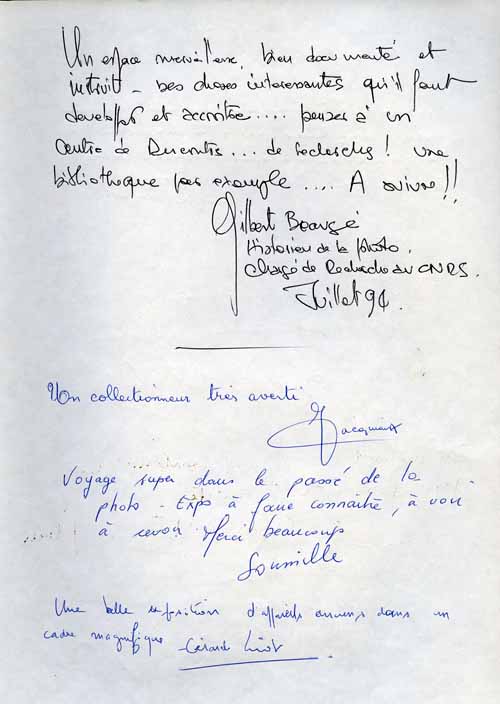 Un espace merveilleux, bien documenté et
instruit - des choses interessantes qu'il faut
developper et accroitre.... pensez à un
Centre de Documents... de recherches! une
bibliotheque par exemple .... A suivre!!
Gilbert Beaugé
Historien de la photo.
Chargé de Recherche au CNRS.
Juillet 94.
Un collectionneur très averti
Jacquieux
Voyage super dans le passé de la
photo - Expo à faire connaître, à voir
à revoir Merci beaucoup
Une belle exposition d'appareils anciens dans un
cadre magnifique Gérard